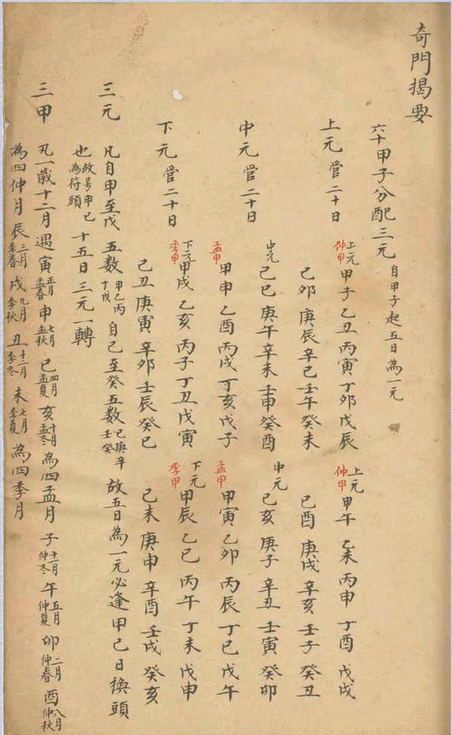 奇門揭要
六十甲子分配三元 自甲子起五日為一元
上元管二十日 上元 仲甲 甲子乙丑丙寅丁卯戊辰 上元 仲甲 甲午乙未丙申丁酉戊戌
己卯庚辰辛巳壬午癸未 己酉庚戌辛亥壬子癸丑
中元管二十日 中元 己巳庚午辛未壬申癸酉 中元 己亥庚子辛丑壬寅癸卯
孟甲 甲申乙酉丙戌丁亥戊子 孟甲 甲寅乙卯丙辰丁巳戊午
下元管二十日 下元 季甲 甲戌乙亥丙子丁丑戊寅 下元 季甲 甲辰乙巳丙午丁未戊申
己丑庚寅辛卯壬辰癸巳 己未庚申辛酉壬戌癸亥
三元 凡自甲至戊五數 甲乙丙丁戊 自己至癸五數 己庚辛壬癸 故五日為一元必逢甲己日換頭
也 故号甲己為符頭 十五日三元一轉
三甲 凡一歲十二月遇寅 正月孟春 申 七月孟秋 巳 四月孟夏 亥 十月孟冬 為四孟月子 十一月仲冬 午 五月仲夏 卯 二月仲春 酉 八月仲秋
為四仲月辰 三月季春 戌 九月季秋 丑 十二月季冬 未 七月季夏 為四季月